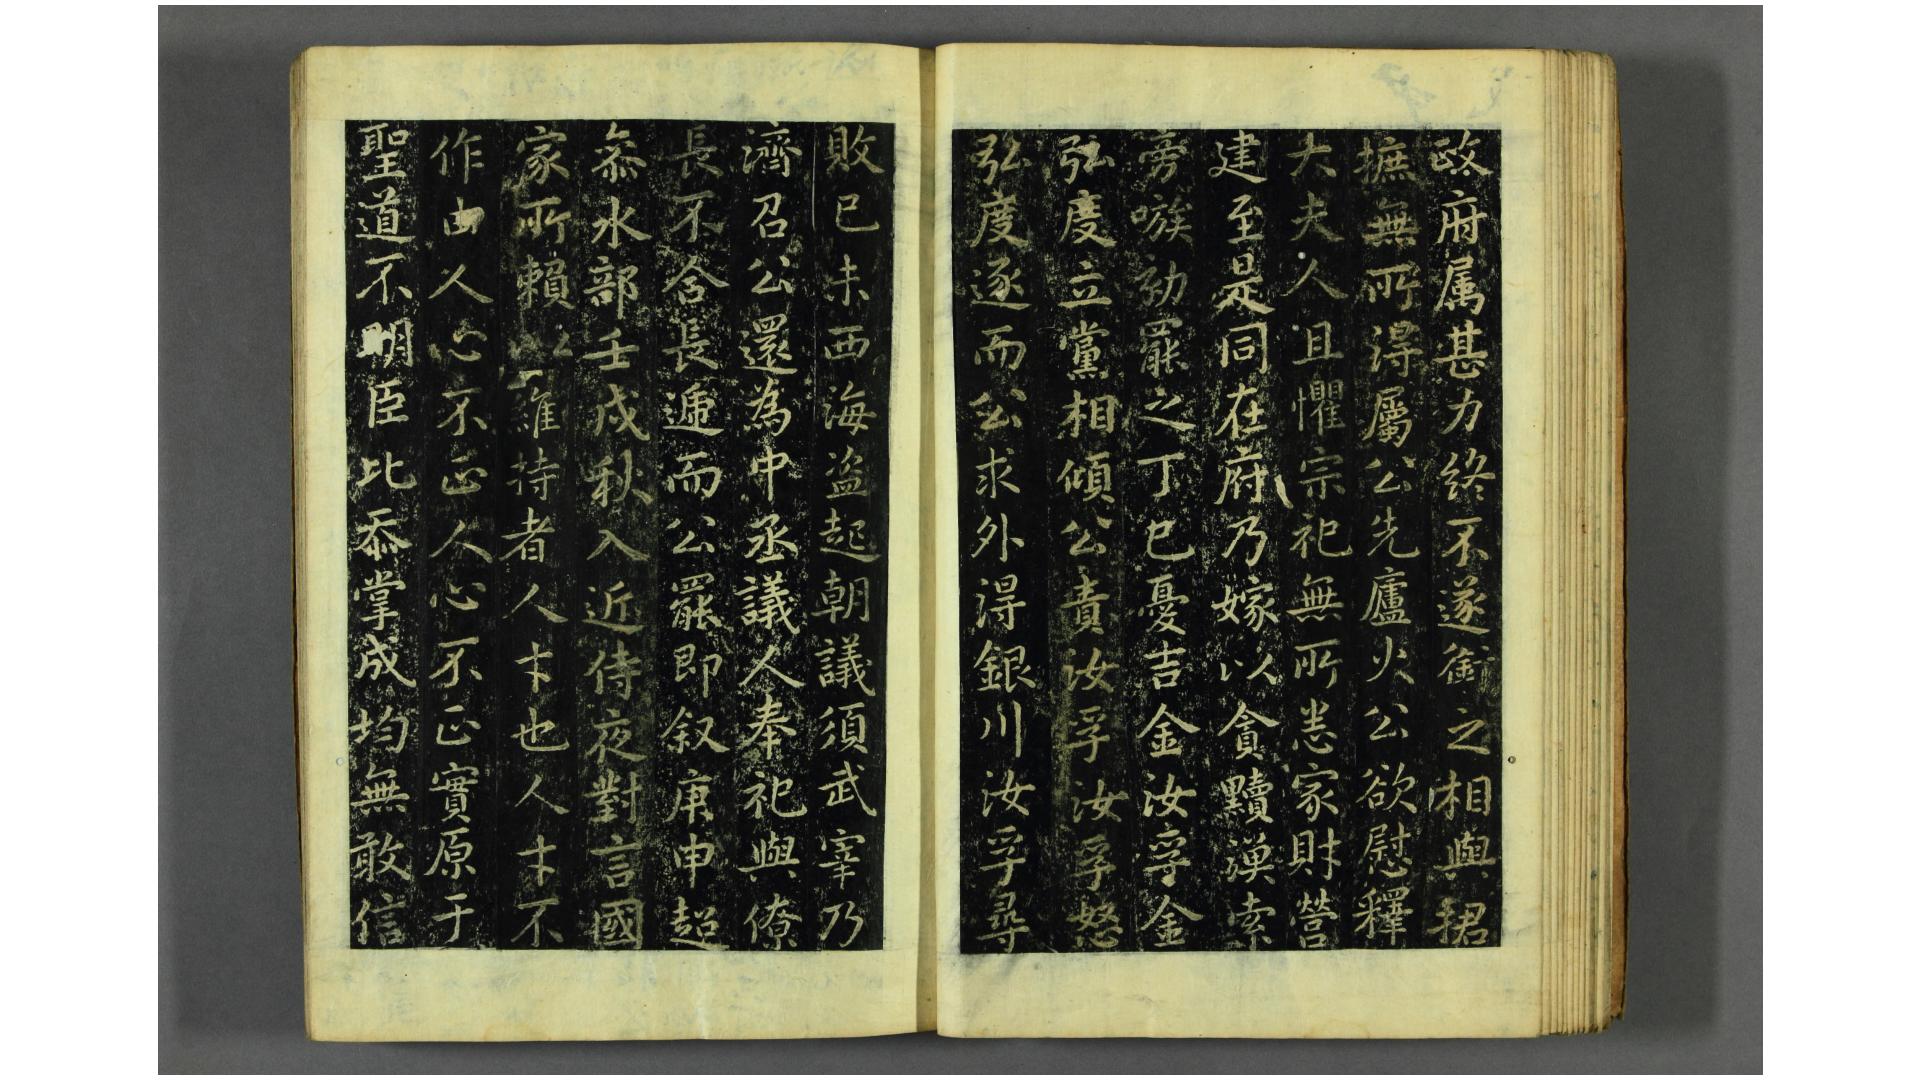 政府属甚力終不遂銜之相與捃
摭無所得屬公先廬火公欲慰釋
大夫人且懼宗祀無所恙家財營
建至是同在府乃嫁以貪黷謨索
旁嗾劾罷之丁巳憂吉金汝孚金
弘度立黨相傾公責汝孚汝孚怒
弘度逐而公求外得銀川汝孚尋
敗已未西海盗起朝議須武宰乃
濟召公還為中丞議人奉祀與僚
長不合長遞而公罷即叙庚申超
叅水部壬戌秋入近侍夜對言國
家所賴以維持者人才也人才不
作由人心不正人心不正實原于
聖道不明臣比忝掌成均無敢信